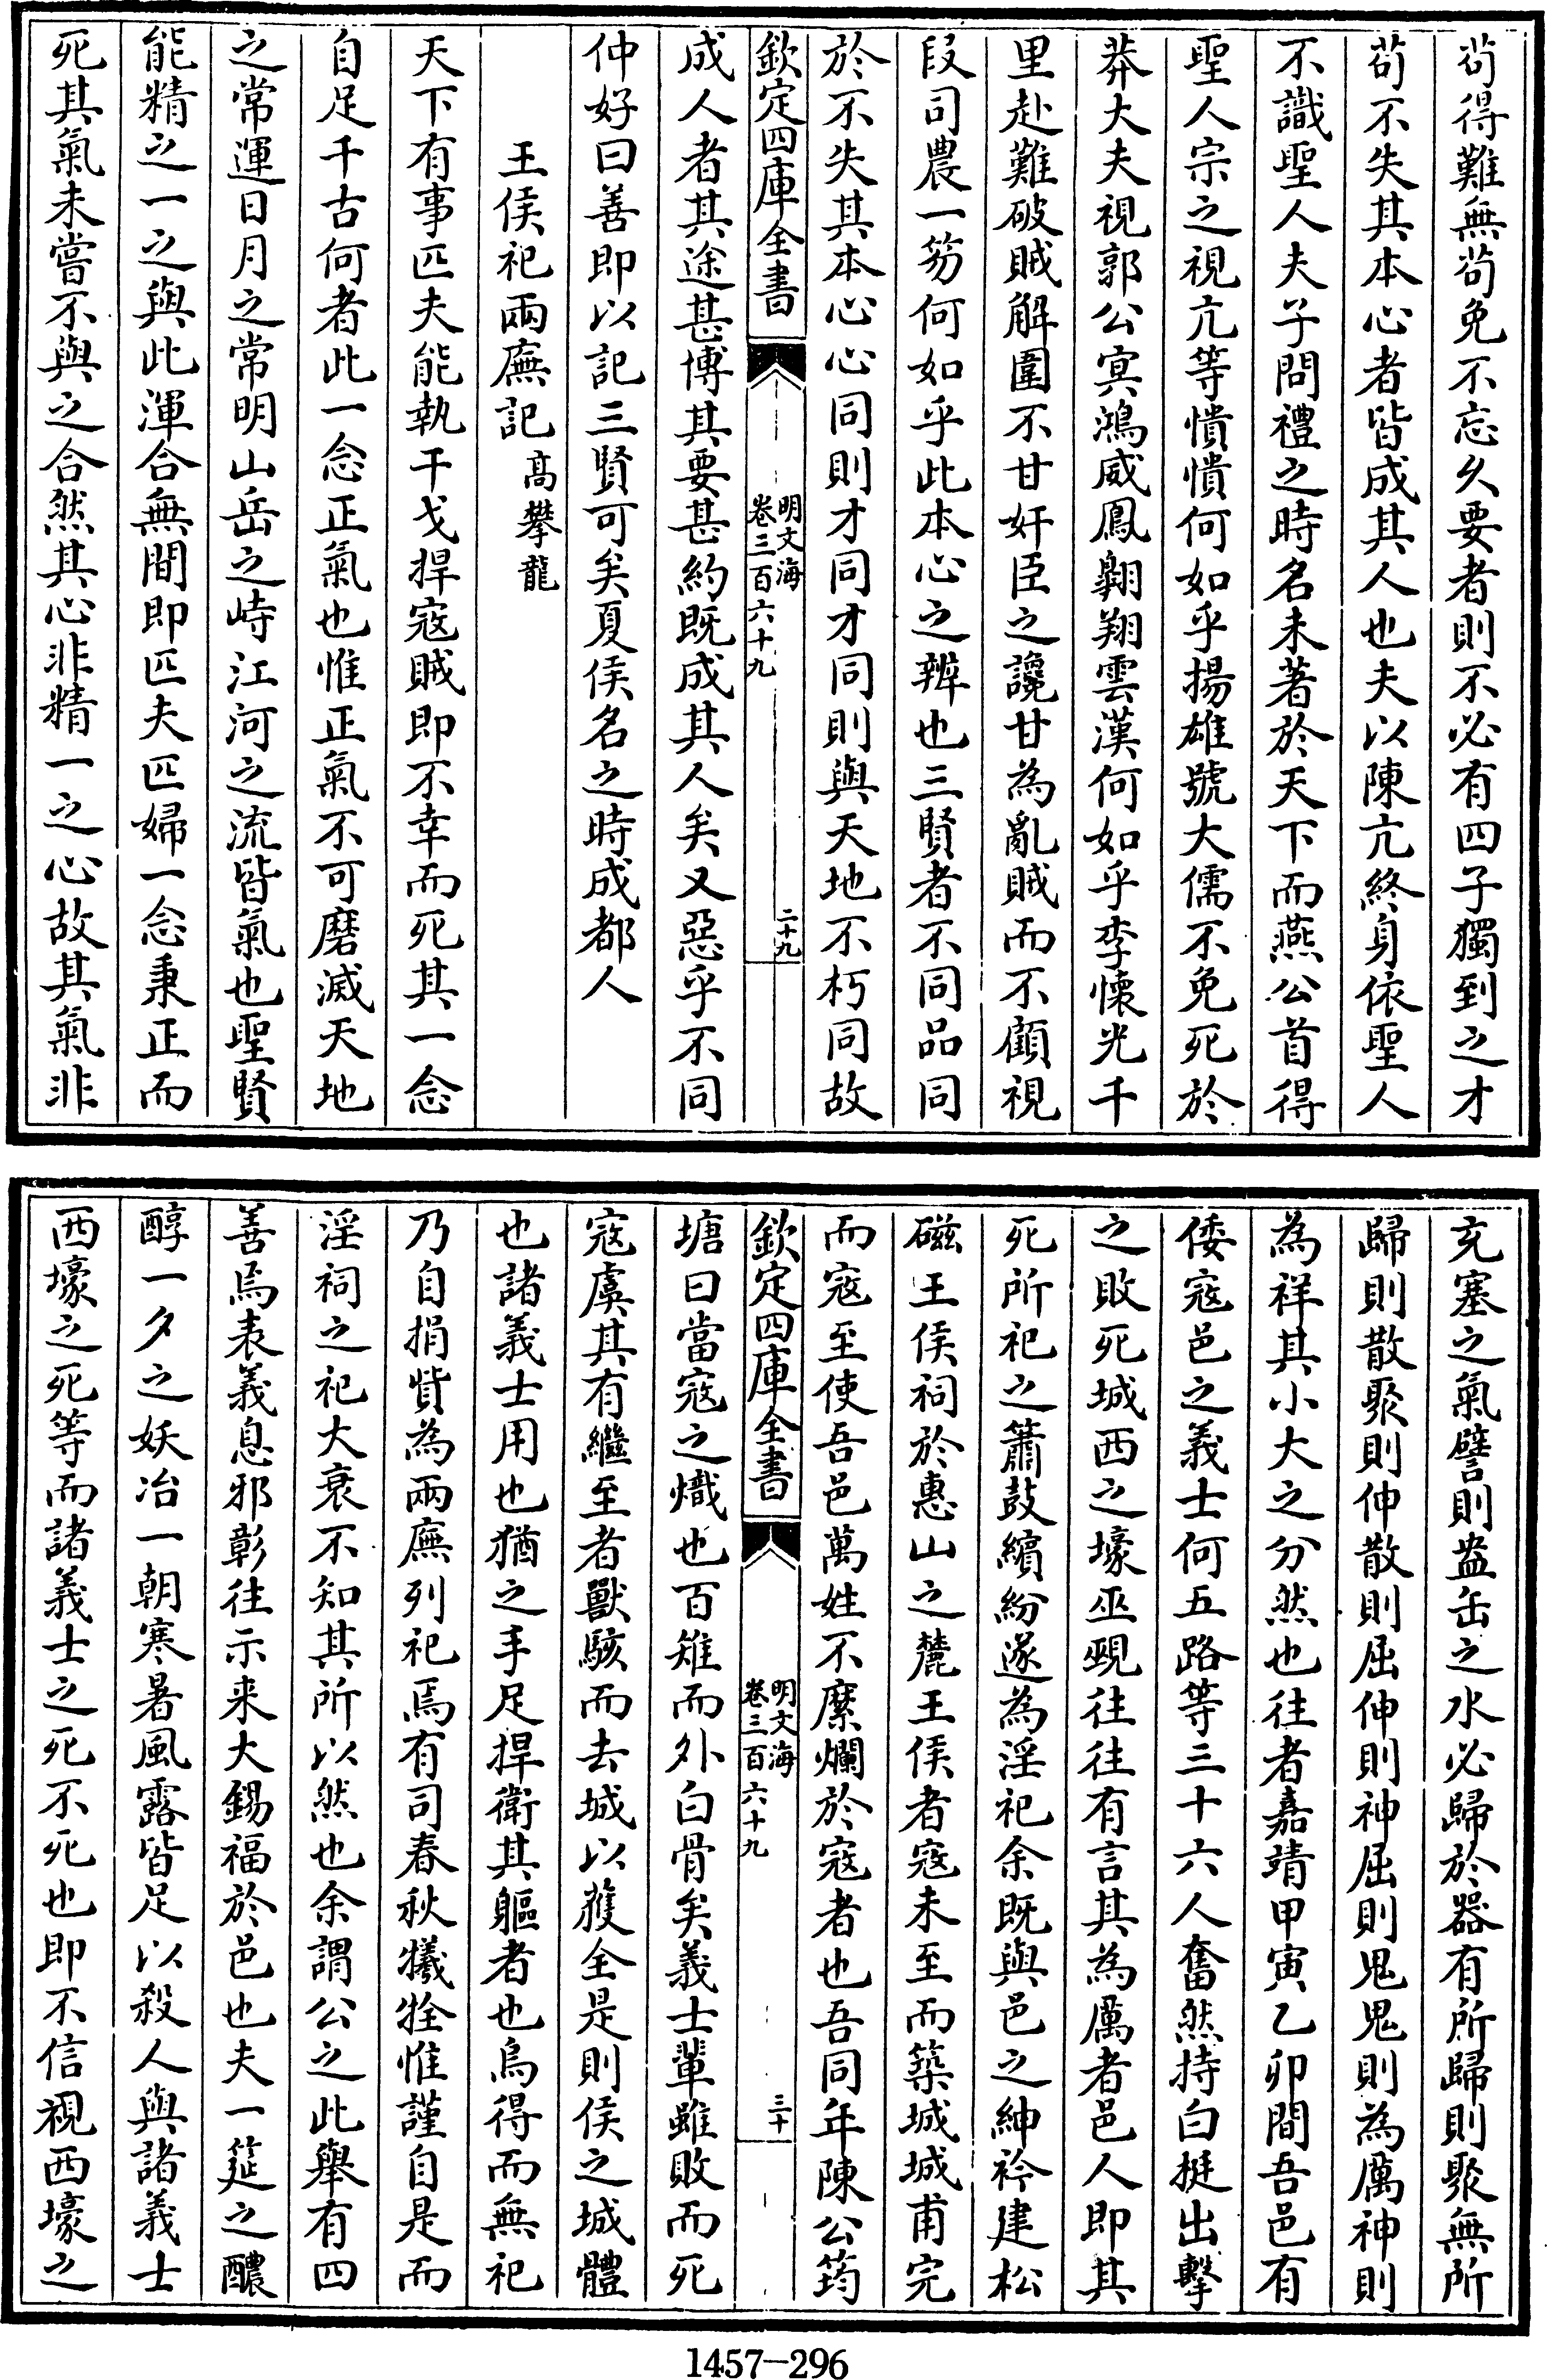 苟得難無苟免不忘久要者則不必有四子獨到之才
苟不失其本心者皆成其人也夫以陳亢終身依聖人
不識聖人夫子問禮之時名未著於天下而燕公首得
聖人宗之視亢等憒憒何如乎揚雄號大儒不免死於
莽大夫視郭公冥鴻威鳳翺翔雲漢何如乎李懷光千
里赴難破賊解圍不甘奸臣之讒甘為亂賊而不顧視
段司農一笏何如乎此本心之辨也三賢者不同品同
於不失其本心心同則才同才同則與天地不朽同故
欽定四庫全書
明文海
卷三百六十九
二十九
成人者其途甚博其要甚約既成其人矣又惡乎不同
仲好曰善即以記三賢可矣夏侯名之時成都人
王侯祀兩廡記高攀龍
天下有事匹夫能執干戈捍寇賊即不幸而死其一念
自足千古何者此一念正氣也惟正氣不可磨滅天地
之常運日月之常明山岳之峙江河之流皆氣也聖賢
能精之一之與此渾合無間即匹夫匹婦一念秉正而
死其氣未嘗不與之合然其心非精一之心故其氣非
充塞之氣譬則盎缶之水必歸於器有所歸則聚無所
歸則散聚則伸散則屈伸則神屈則鬼鬼則為厲神則
為祥其小大之分然也往者嘉靖甲寅乙卯間吾邑有
倭寇邑之義士何五路等三十六人奮然持白挺出擊
之敗死城西之壕巫覡往往有言其為厲者邑人即其
死所祀之簫鼓繽紛遂為淫祀余既與邑之紳衿建松
磁王侯祠於惠山之麓王侯者寇未至而築城城甫完
而寇至使吾邑萬姓不糜爛於寇者也吾同年陳公筠
欽定四庫全書
明文海
卷三百六十九
三十
塘曰當寇之熾也百雉而外白骨矣義士輩雖敗而死
寇虞其有繼至者獸駭而去城以獲全是則侯之城體
也諸義士用也猶之手足捍衛其軀者也烏得而無祀
乃自捐貲為兩廡列祀焉有司春秋犧牷惟謹自是而
淫祠之祀大衰不知其所以然也余謂公之此舉有四
善焉表義息邪彰往示来大錫福於邑也夫一筵之醲
醇一夕之妖冶一朝寒暑風露皆足以殺人與諸義士
西壕之死等而諸義士之死不死也即不信視西壕之
1457—296